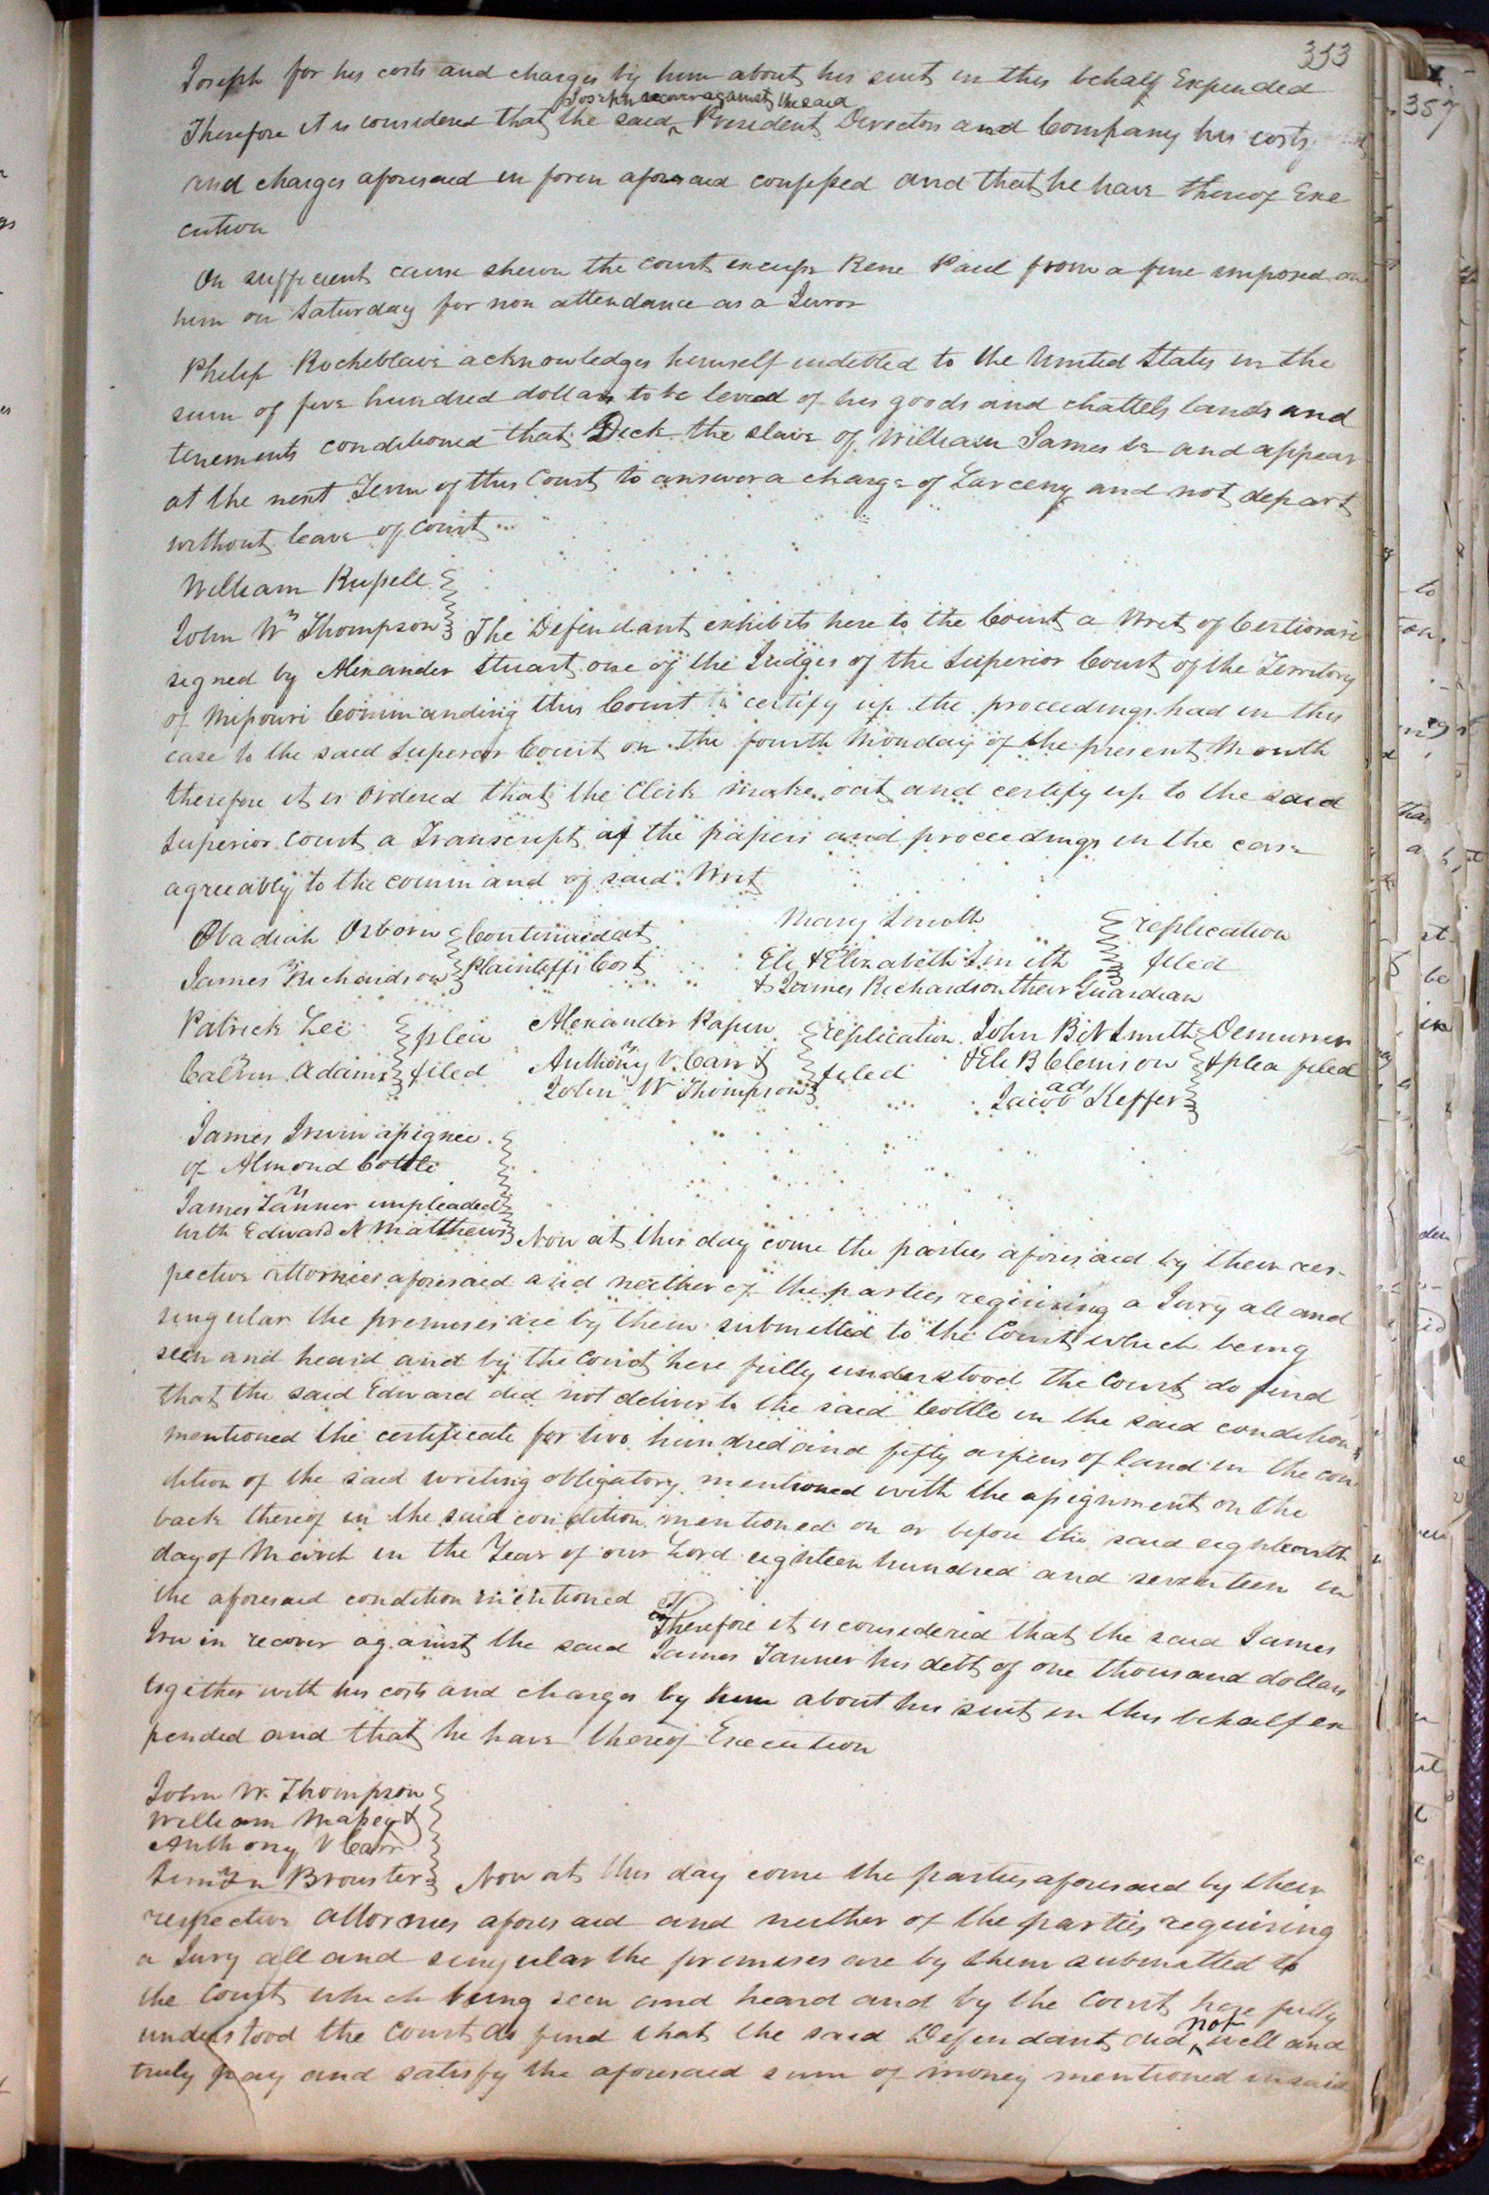 353
Joseph for his costs and charges by him about his suit in this behalf Expended
Joseph recover against the said
Therefore it is considered that the said ‸ President Directors and Company his costs
and charges aforesaid in form aforesaid confessed and that he have thereof Exe
cution
On sufficient cause shewn the court excuse Rene Paul from a fine imposed on
him on Saturday for non attendance as a Juror
Philip Rocheblave acknowledges himself indebted to the United States in the
sum of five hundred dollars to be levied of his goods and chattels lands and
tenements conditioned that Dick the slave of William James be and appear
at the next Term of this Court to answer a charge of Larceny and not depart
without leave of court
William Russell
vs
John W Thompson The Defendant exhibits here to the Court a Writ of Certiorari
signed by Alexander Stuart one of the Judges of the Superior Court of the Territory
of Missouri Commanding this Court to certify up the proceedings had in this
case to the said Superior Court on the fourth Monday of the present Month
therefore it is ordered that the Clerk make out and certify up to the said
Superior court a Transcript of the papers and proceedings in the case
agreeably to the command of said Writ
Obadiah Osborn Continued at
vs
James Richardson Plaintiffs Cost
Mary Smith replication
vs
Eli & Elizabeth Smith filed
& James Richardson their Guardian
Patrick Lee plea
vs
Calvin Adams filed
Alexander Papin replication
vs
Anthony V. Carr & filed
John W Thompson
John B N Smith Demurrer
& Eli B Clemson & plea filed
ads
Jacob Keffer
James Irwin assignee
of Almond Cottle
vs
James Tanner impleaded
with Edward N Matthews Now at this day come the parties aforesaid by their res-
pective attornies aforesaid and neither of the parties requiring a Jury all and
singular the premises are by them submitted to the Court which being
seen and heard and by the Court here fully understood the Court do find
that the said Edward did not deliver to the said Cottle in the said condition
mentioned the certificate for two hundred and fifty arpens of land in the con
dition of the said writing obligatory mentioned with the assignment on the
back thereof in the said condition mentioned on or before the said eighteenth
day of March in the Year of our Lord eighteen hundred and seventeen in
the aforesaid condition mentioned Therefore it is considered that the said James
Irwin recover against the said James Tanner his debt of one thousand dollars
together with his costs and charges by him about his suit in this behalf ex
pended and that he have thereof Execution
John W. Thompson
William Massey &
Anthony V Carr
vs
Brouster Now at this day come the parties aforesaid by their
respective attornies aforesaid and neither of the parties requiring
a Jury all and singular the premises are by them submitted to
the Court which being seen and heard and by the Court here fully
understood the Court do find that the said Defendant did ‸ not well and
truly pay and satisfy the aforesaid sum of money mentioned in said
357